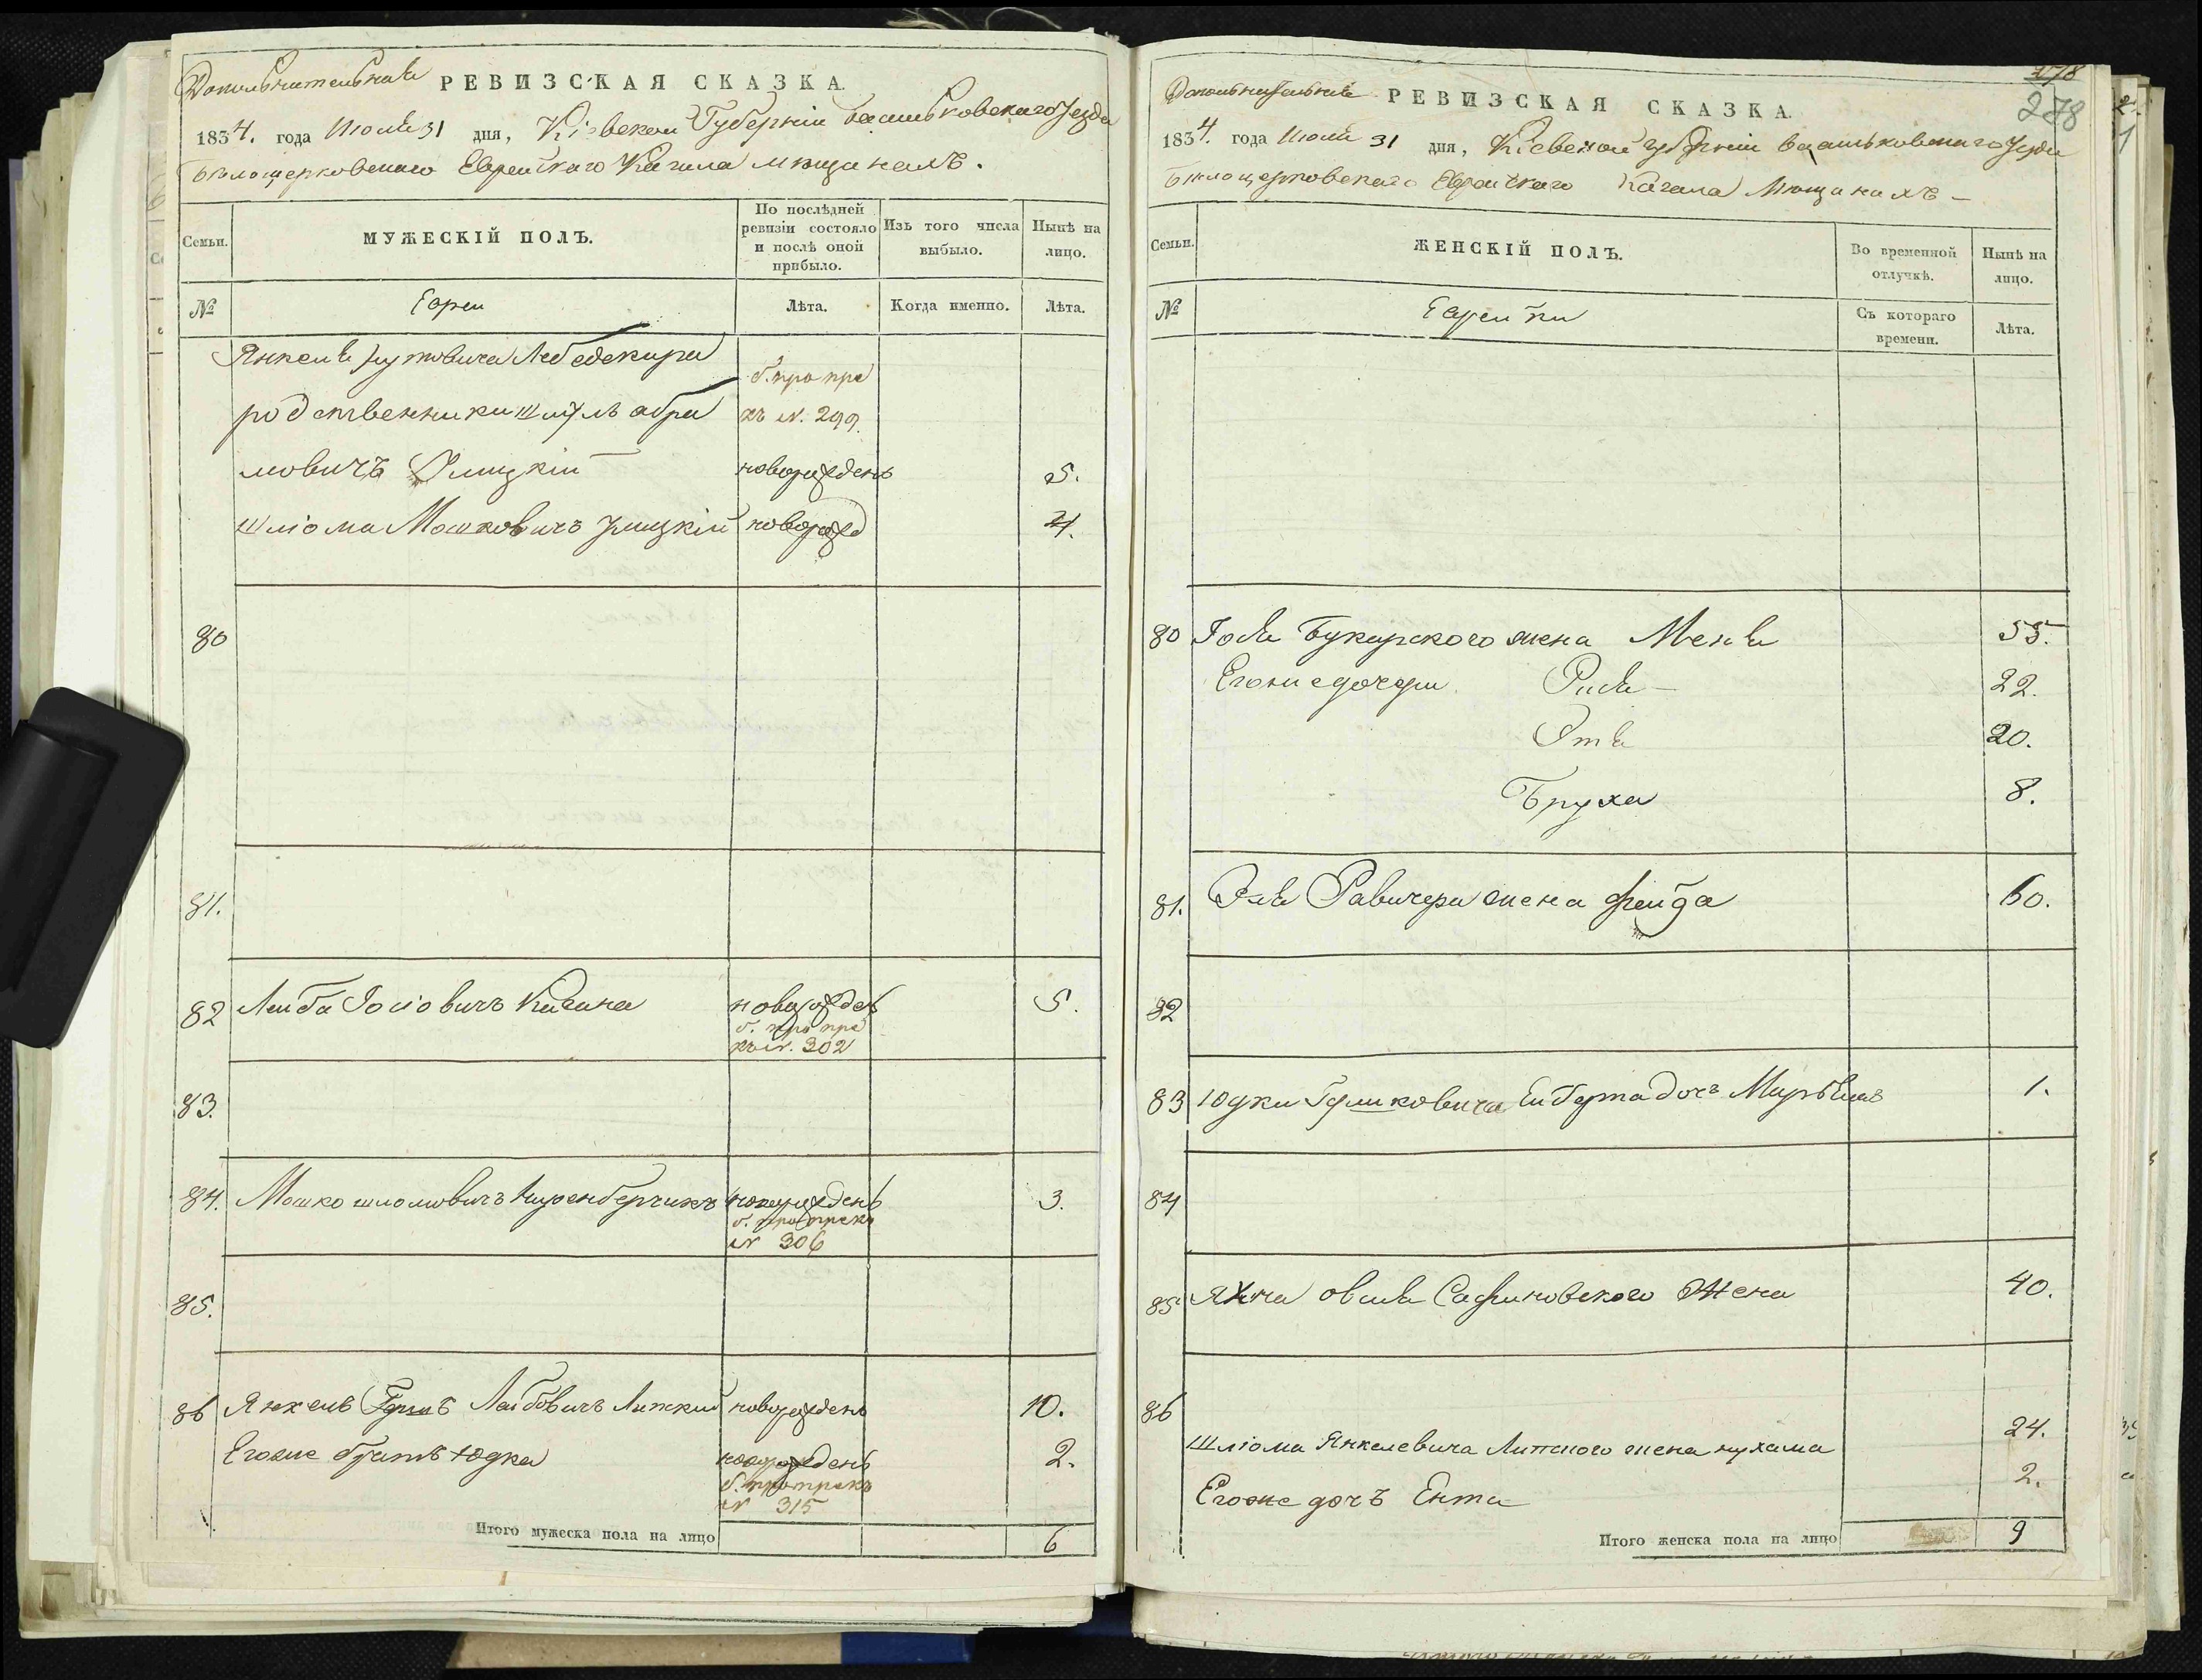 Дополнительная РЕВИЗСКАЯ СКАЗКА
1834. года Июля 31 дня, Кіевской Губерніи Васильковскаго Уезда
Белоцерковскаго Еврейскаго Кагала мещанамъ.
Семьи.
МУЖЕСКІЙ ПОЛЪ.
По послѣдней ревизіи состояло и послѣ оной прибыло.
Изъ того числа выбыло.
Нынѣ на лицо.
№
Евреи
Лѣта.
Когда именно.
Лѣта.
Янкеля
родственники Шмуль абра
къ №. 299.
мовичъ Улицкій новорожденъ 5.
Шліома Мошковичъ Улицкій новорожд 4.
80
81.
82 Лейба Іосіовичъ Кагана новорожден 5.
№. 302
83.
84. Мошко шломовичъ Ниренберчикъ новорожденъ 3.
№ 306
85.
86 Янкель Гершъ Лейбовичъ Липкій новорожденъ 10.
Егоже братъ Юдка новорожденъ 2.
№ 315
Итого мужеска пола на лицо 6
278
278
Дополнительная РЕВИЗСКАЯ СКАЗКА.
1834. года Июля 31 дня, Кіевской губерніи Васильковскаго Уезда
Белоцерковскаго Еврейскаго Кагала Мещанамъ
Семьи.
ЖЕНСКІЙ ПОЛЪ.
Во временной отлучкѣ.
Нынѣ на лицо.
№
Еврейки
Съ котораго времени.
Лѣта.
80 Госля Букарского жена Меня 55.
Егоже дочери Рися 22.
Этя 20.
Бруха 8.
81. Эля Равичера жена фейга 60.
82
83 Юдки Гершковича дочъ 1.
84
85 Яхна овсия жена 40.
86
Шліома Янкелевича Липского жена нухама 24.
Егоже дочъ Ента 2.
Итого женска пола на лицо 9